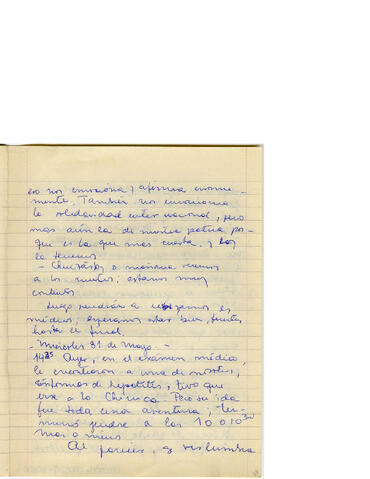 eso nos emociona y afirma enorme-
mente. También nos emociona
la solidaridad internacional, pero
mas aún la de nuestra patria por-
que es la que mas cuesta, y hoy
la tenemos
a los nuestros; estamos muy
contentos
Luego vendrán a los
médicos, esperamos estar bien, fuertes
hasta el final.
- Miércoles 31 de Mayo. -
14 25 Ayer, en el examen médico,
le encontraron a una de nosotras,
síntomas de hepatitis, tuvo que
irse a la Clínica. Pero su ida
fue toda una aventura; ter-
a las 10
mas o menos
Al parecer, se vislumbra